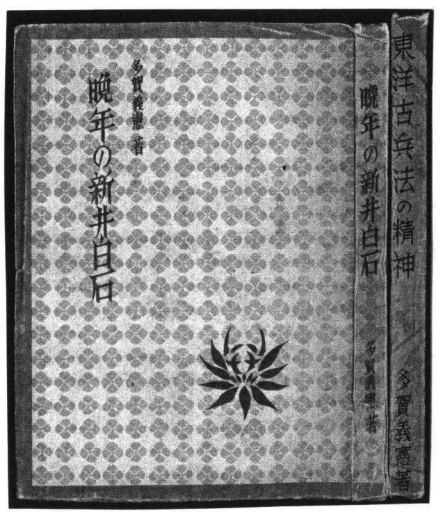 多賀義憲著
晩年の新井白石
晩年の新井白石
多賀義憲著
東洋古兵法の精神
多賀義憲著